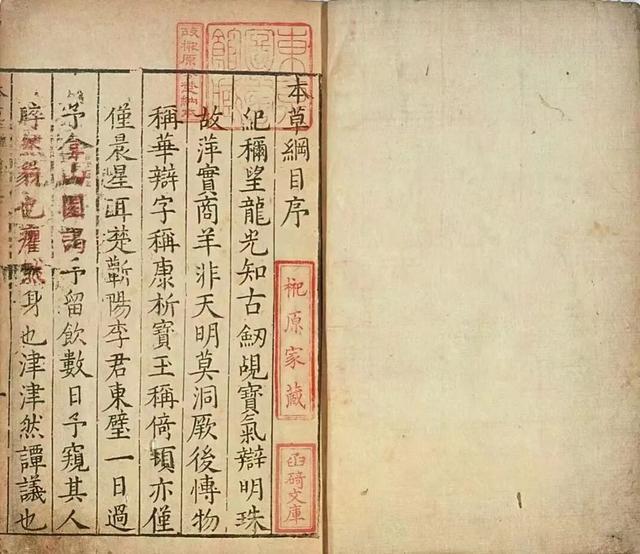 本草綱目序
紀穪望龍光知古劒覘寶氣辯明珠
故萍實商羊非天明莫洞厥後博物
稱華辯字稱康析寶玉稱倚頓亦僅
僅晨星耳楚蘄陽李君東璧一日過
予弇山園謁予留飲數日予窺其人
睟然貌也癯然身也津津然譚議也
榊原家藏
函碕文庫